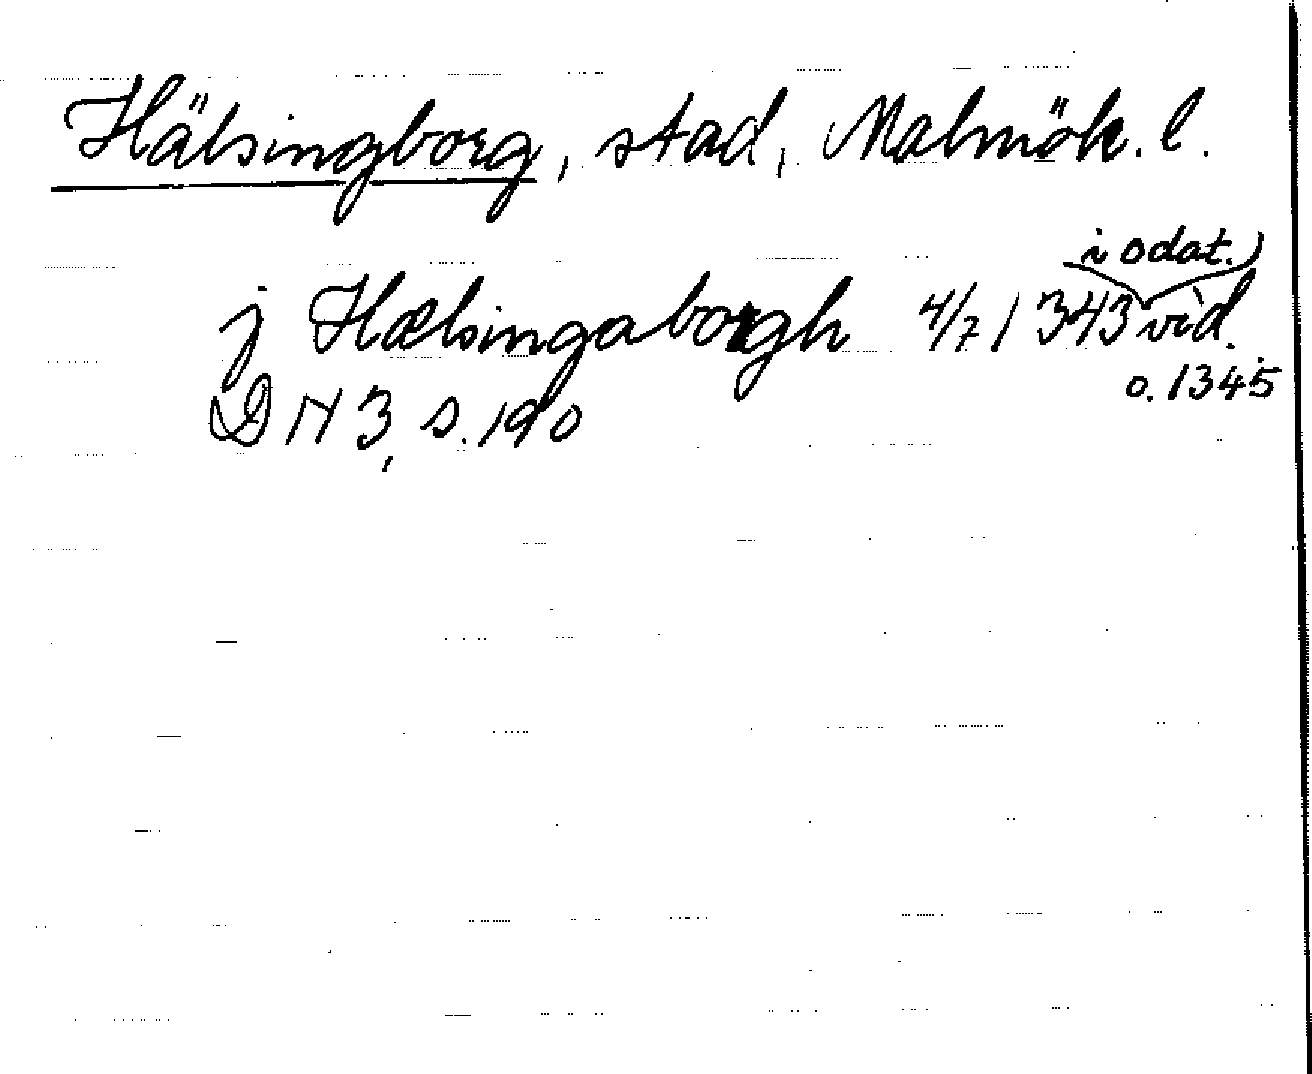 Hälsingborg, stad, Malmöh. l.
i odat.
j Hælsingaborgh 4/7 1343 vid.
o. 1345
DN 3, s. 190